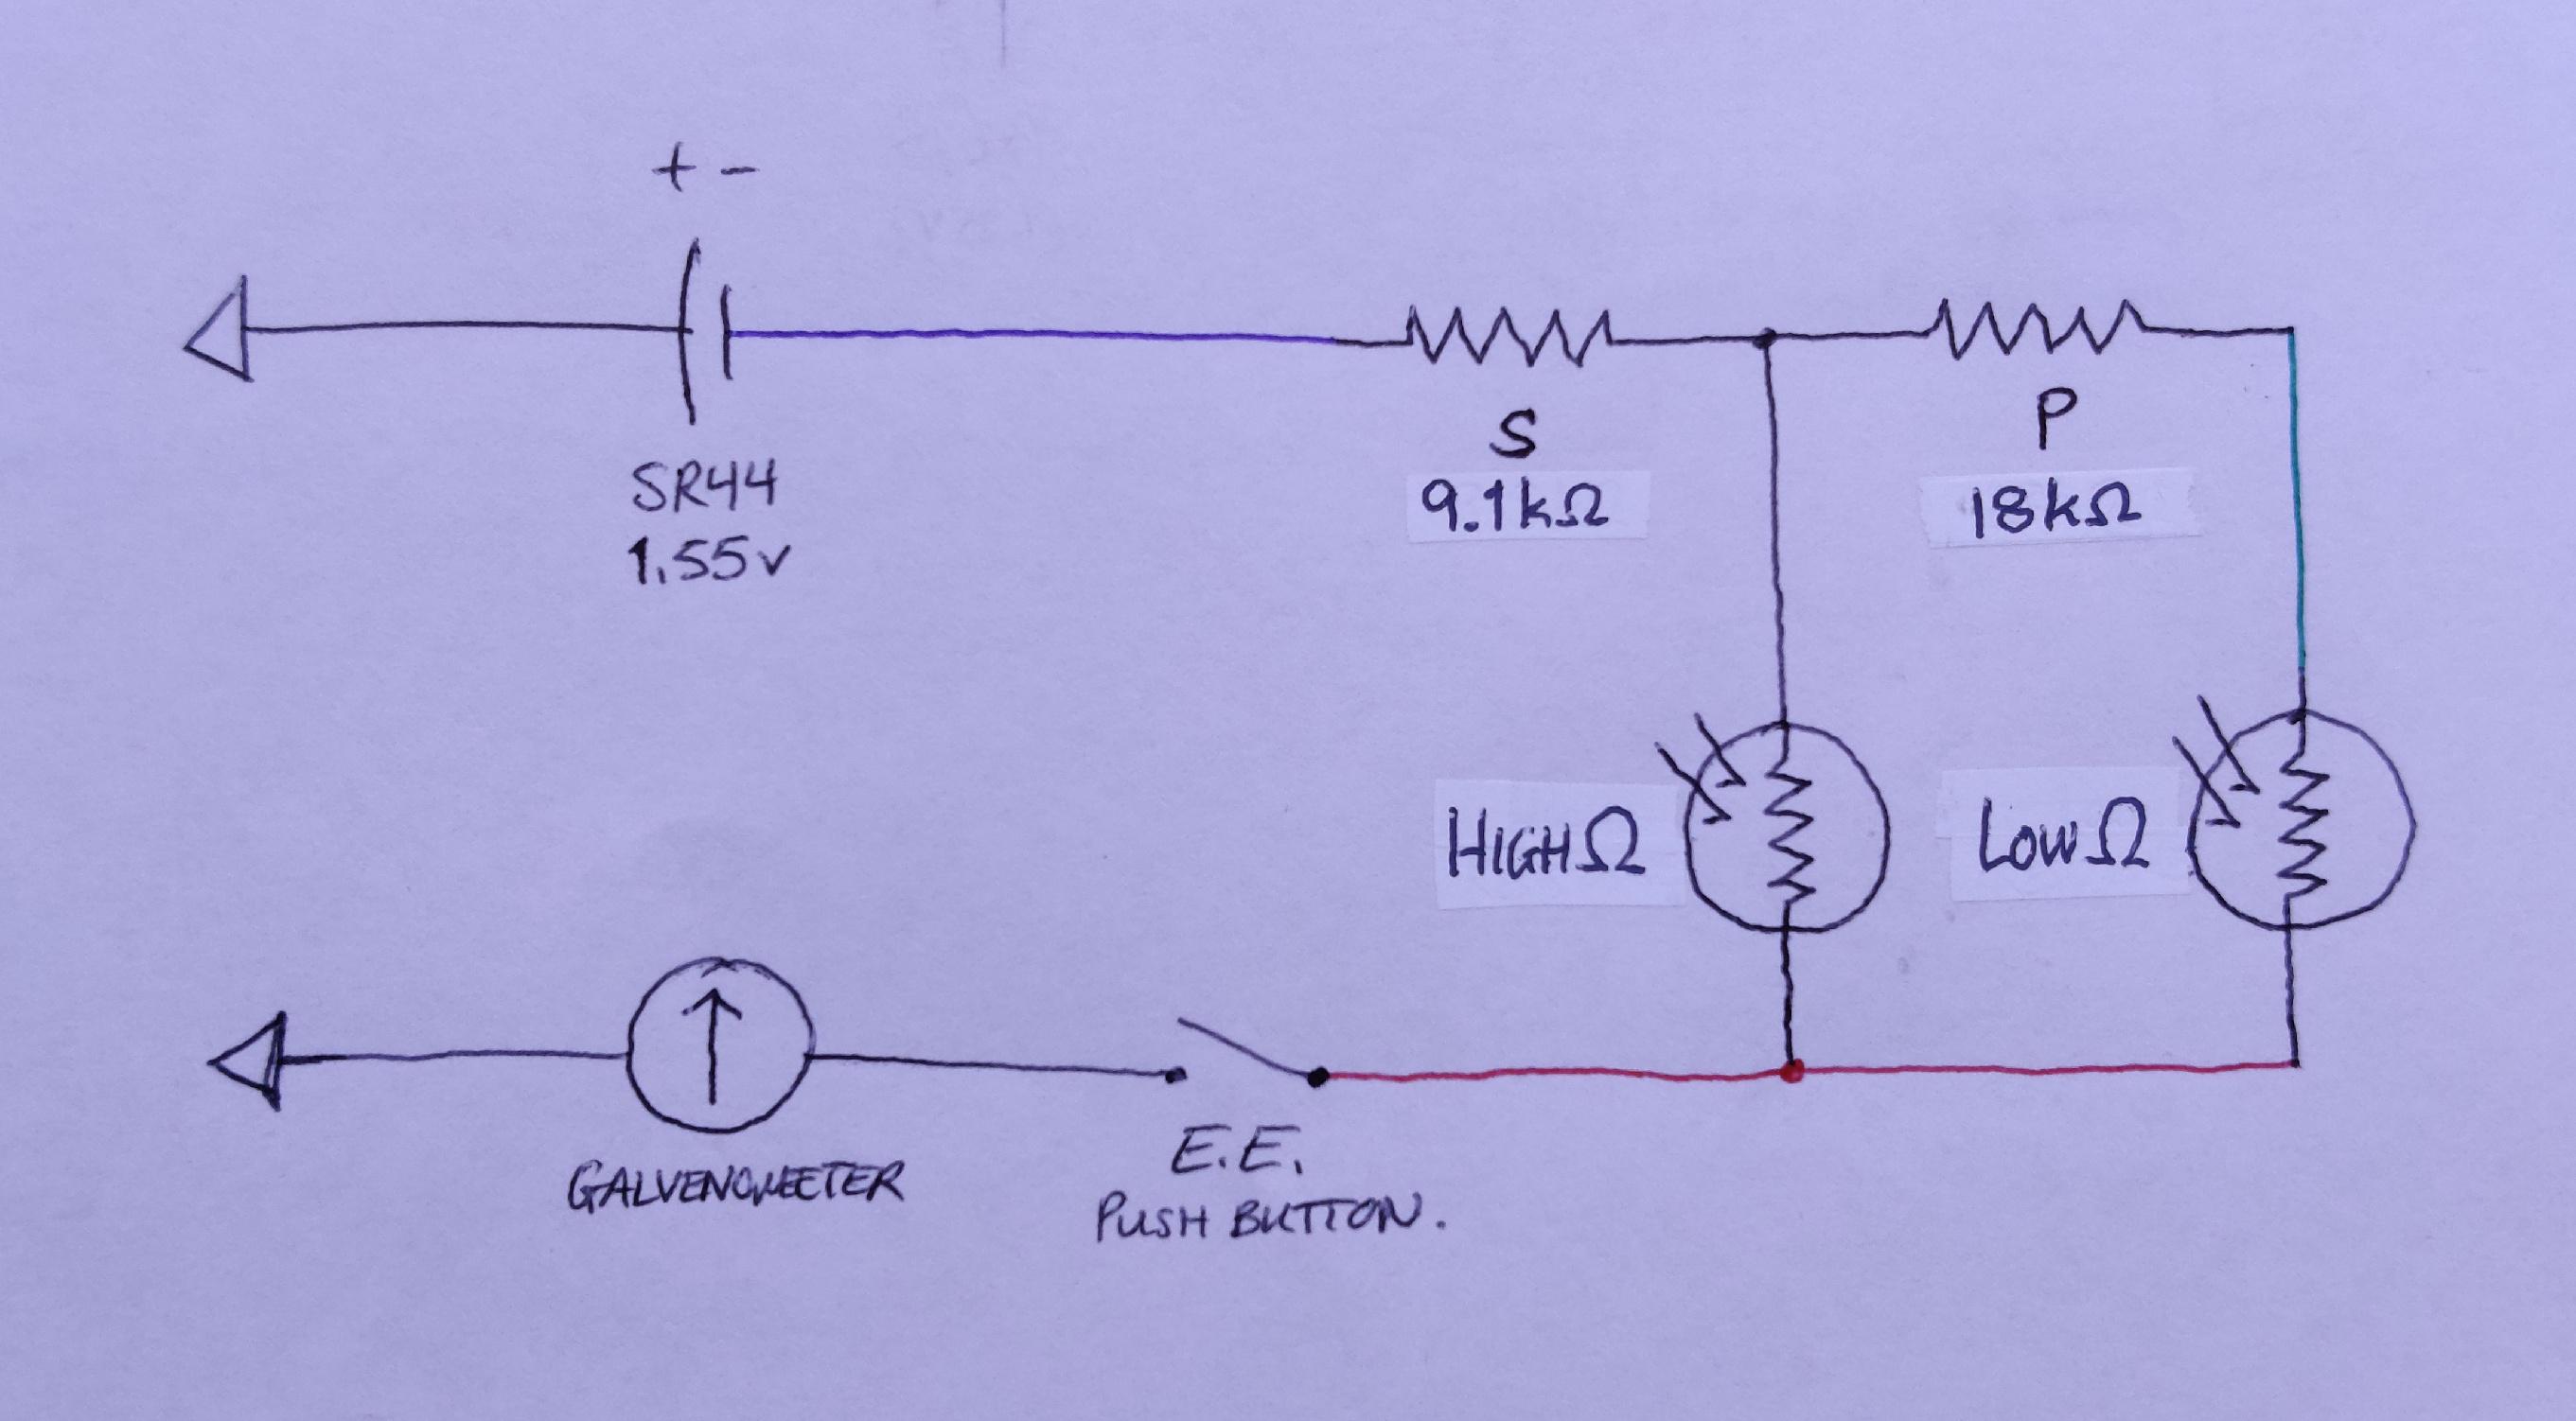 + -
SR44
1.55v
S
9.1kΩ
P
18kΩ
HIGHΩ
LOWΩ
GALVENOMEETER
E.E.
PUSH BUTTON.